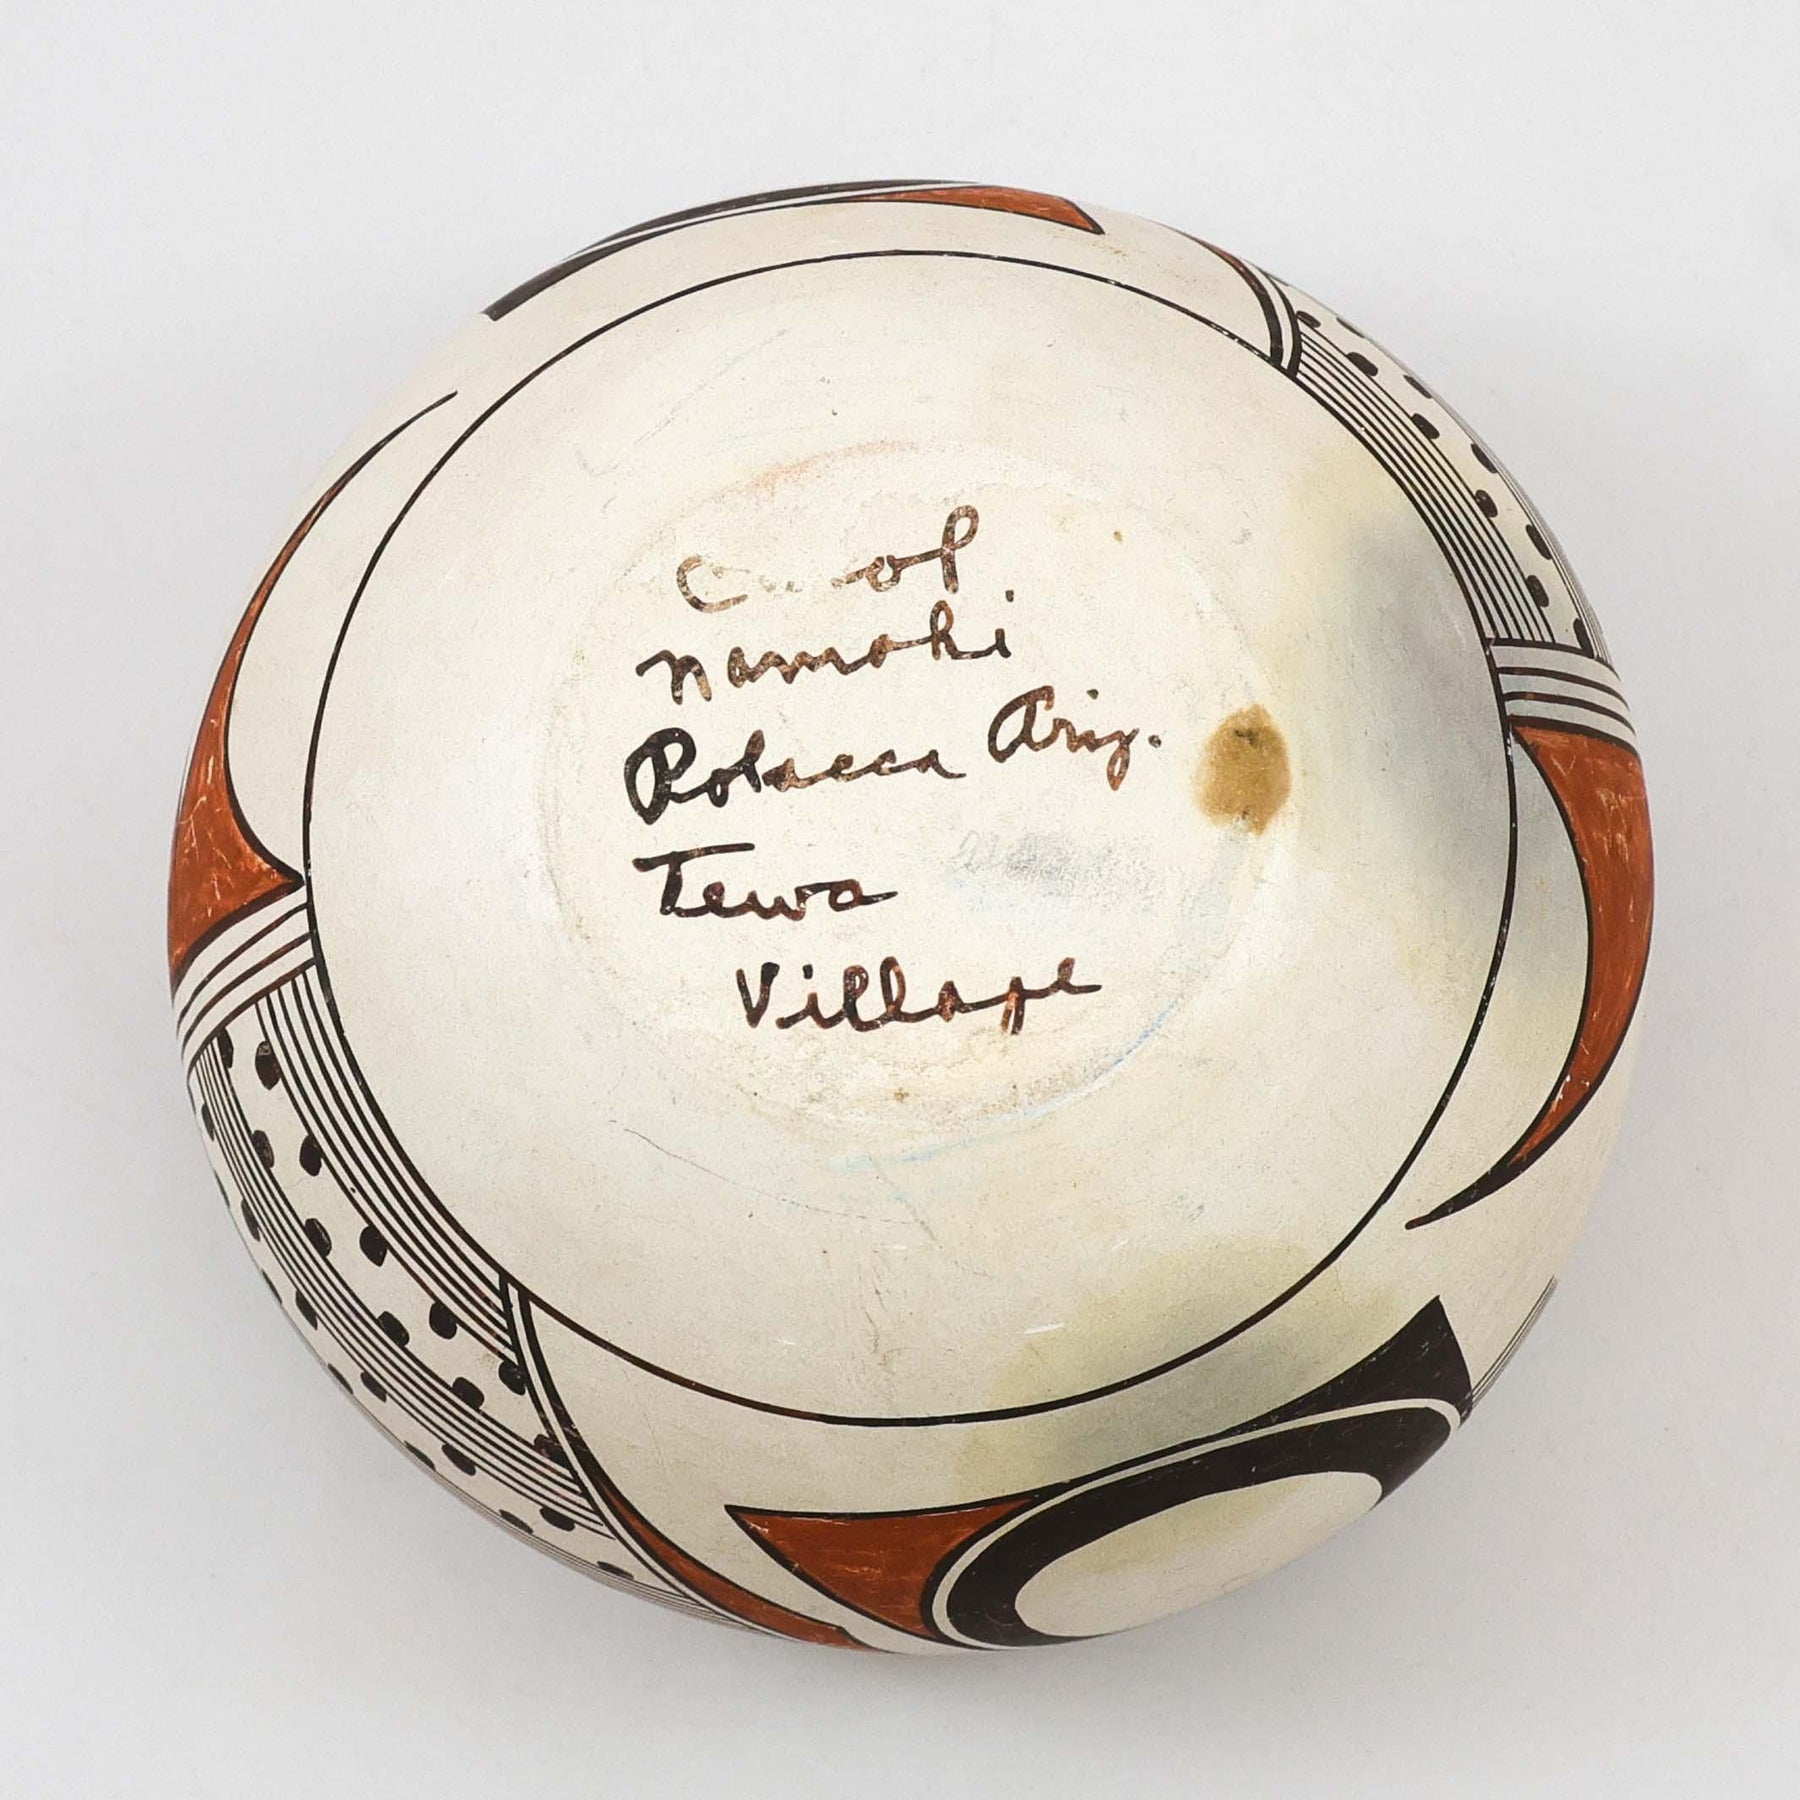 Namoki
Polacca Ariz.
Tewa
Village